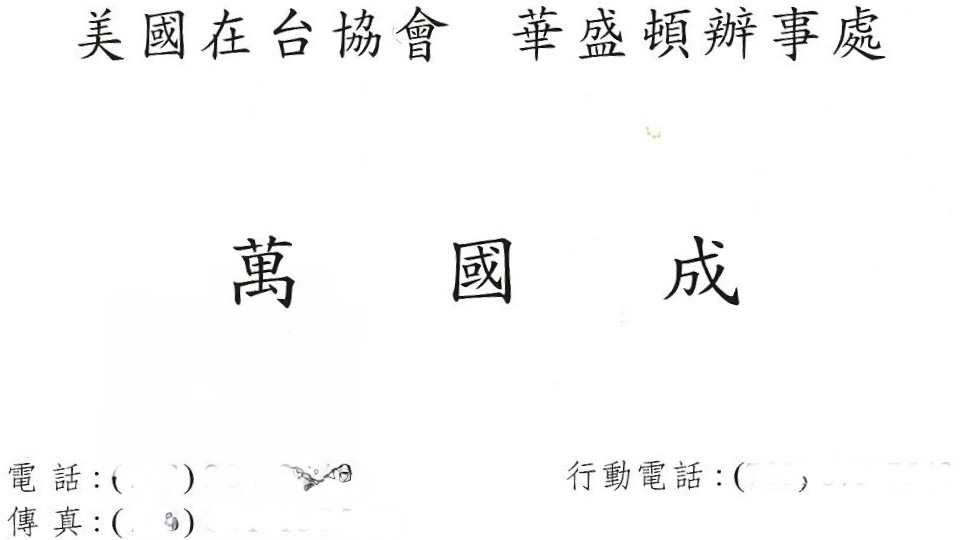 美國在台協會 華盛頓辦事處
萬國成
電話:( )
行動電話:( )
傳真:( )